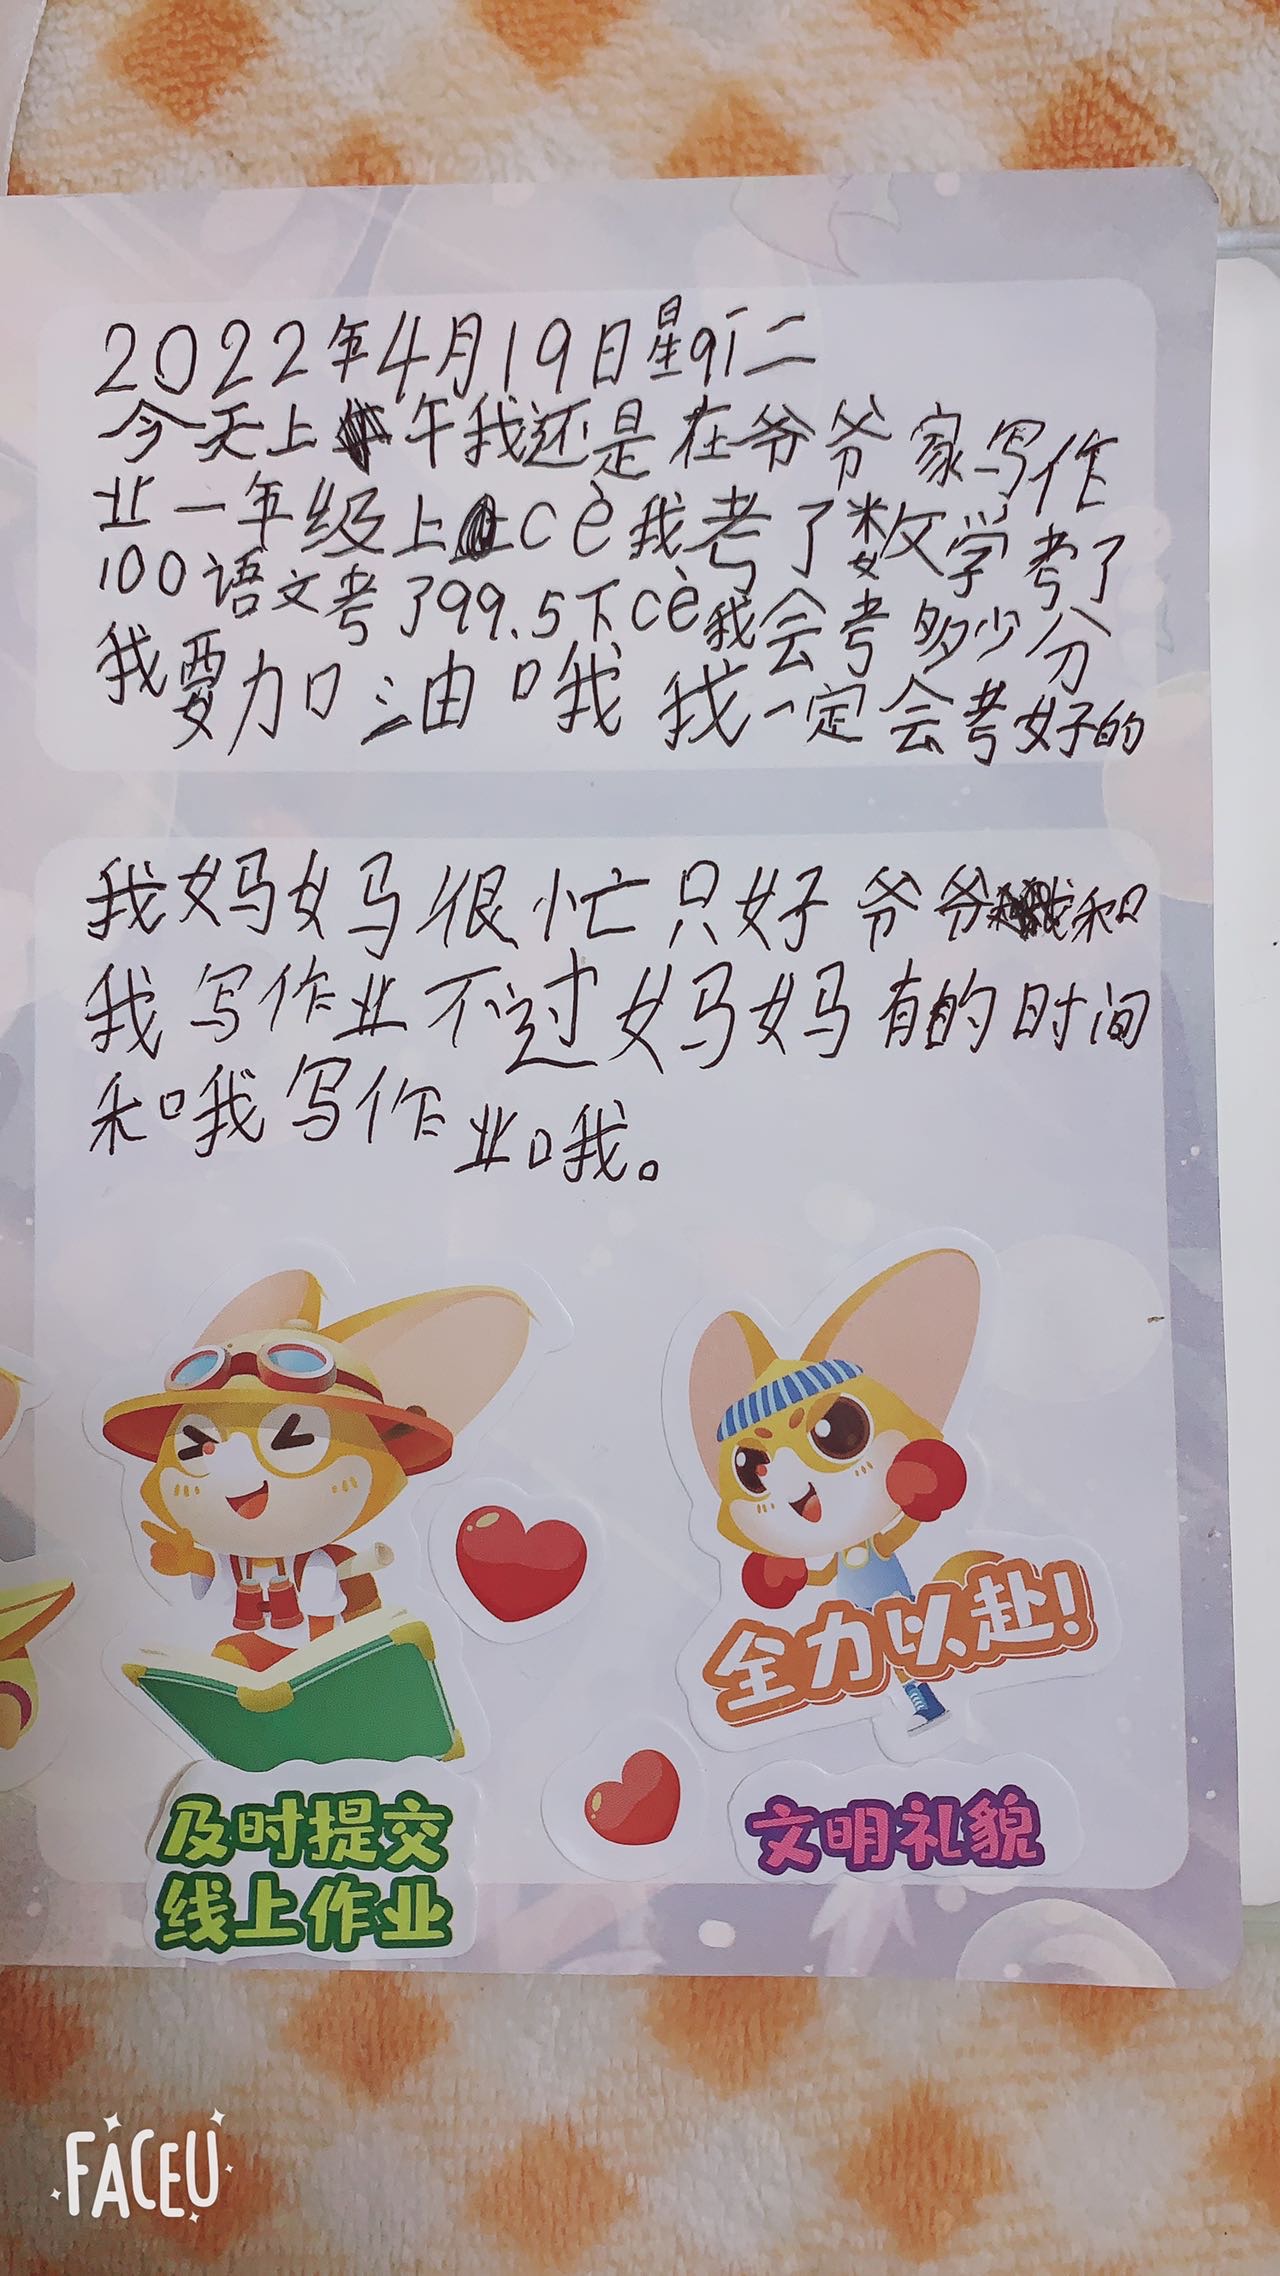 2022年4月19日星qī二
今天上午我还是在爷爷家写作
业一年级上cè我考了数学考了
100语文考了99.5下cè我会考多少分
我要加油哦我一定会考好的
我妈妈很忙只好爷爷和
我写作业不过妈妈有的时间
和哦写作业哦。
全力以赴!
及时提交
线上作业
文明礼貌
FACEU